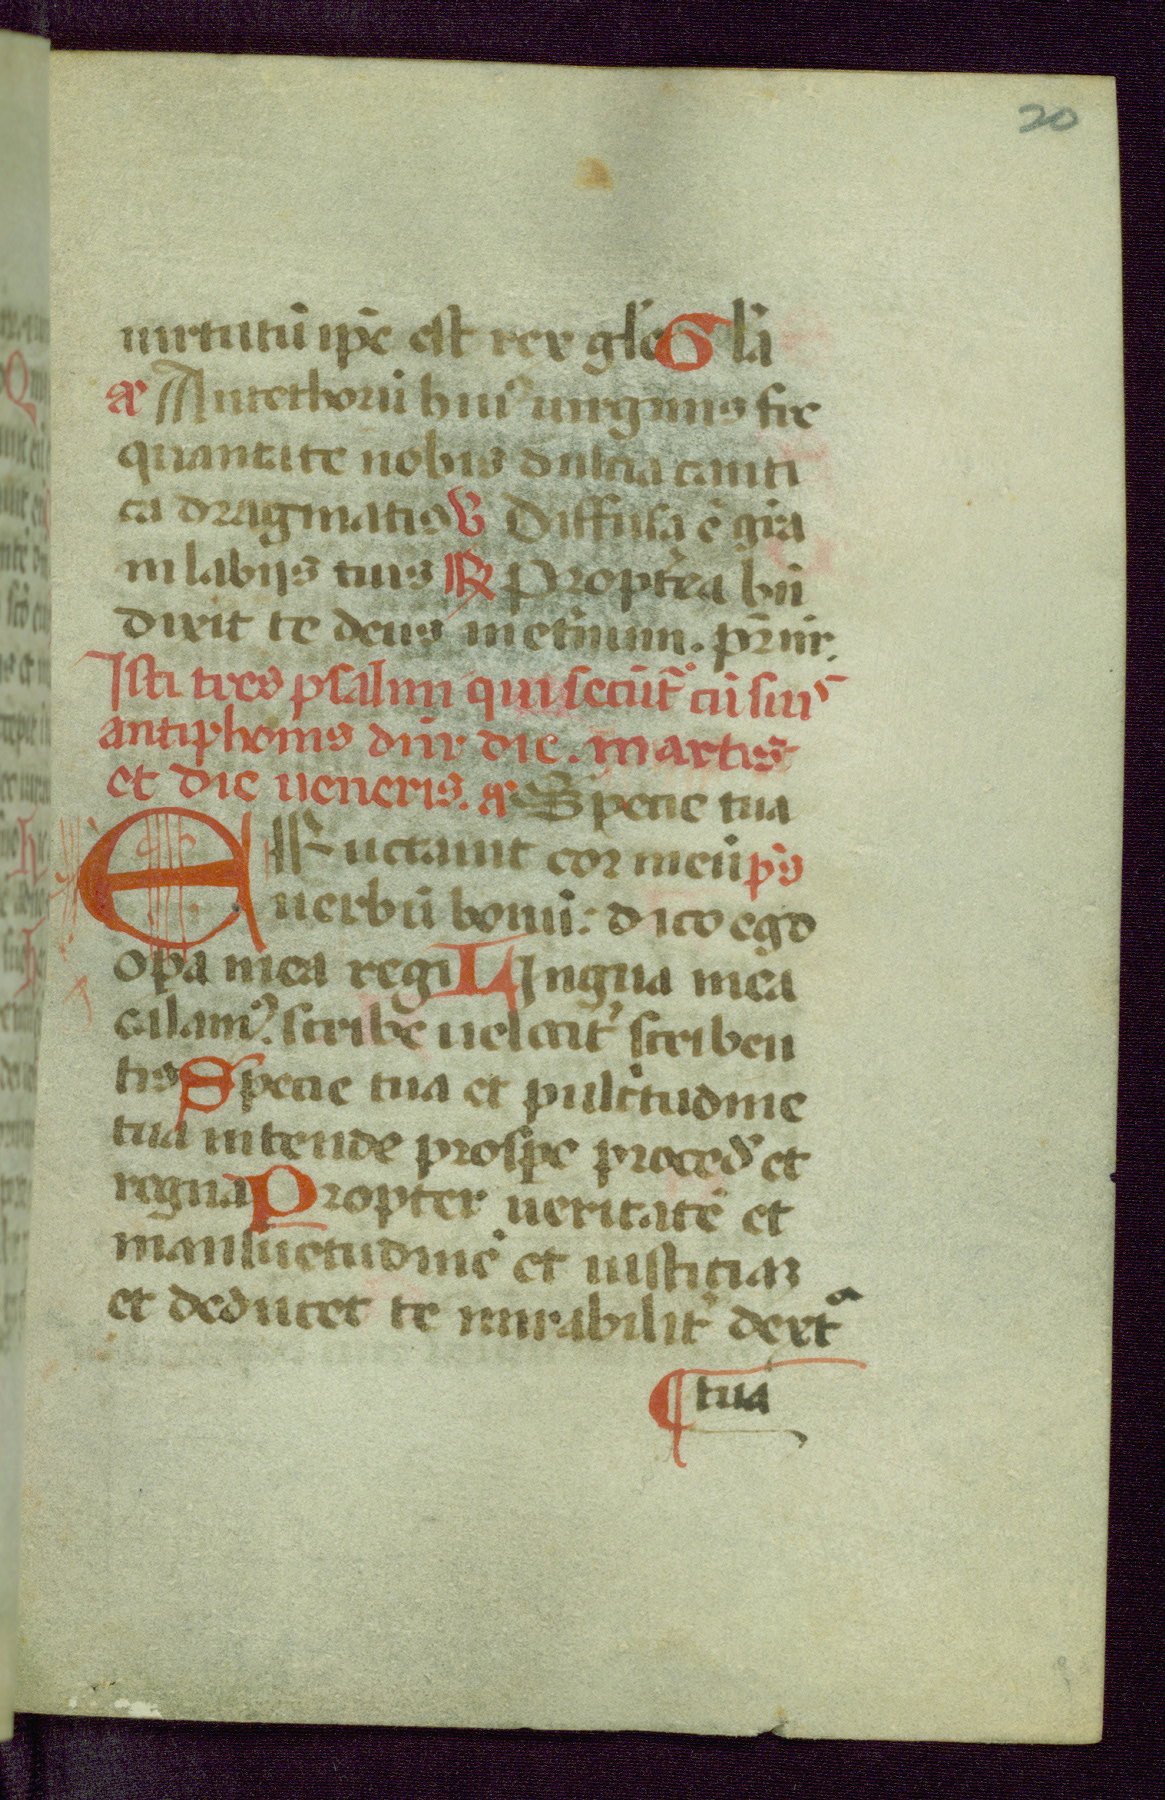 20
uirtutū ip̄e est rex gl̄e Gla̅
añ Ante thorū huiꝰ uirginis fre
quentate nobis dulcia canti
ca dragmatis ℣ Diffusa ē gr̄a
in labijs tuis ℟ Propt̄ea bn̄
dixit te deus in et̄num. pr̄ nr̄.
Isti tres psalmi qui secūt̄ cū suis
antiphonis dn̄r die. martis
et die ueneris. añ Specie tua
Eructauit cor meū ps̄
uerbū bonū: dico ego
op̄a mea regi Lingua mea
calamꝰ. scribe uelocit̄ scriben
tis Specie tua et pulc̄tudine
tua intende prosp̄e proced̄ et
regna Propter ueritatē et
mansuetudinē et iustitiaꝫ
et deducet te mirabilit̄ dextᵃ
tua